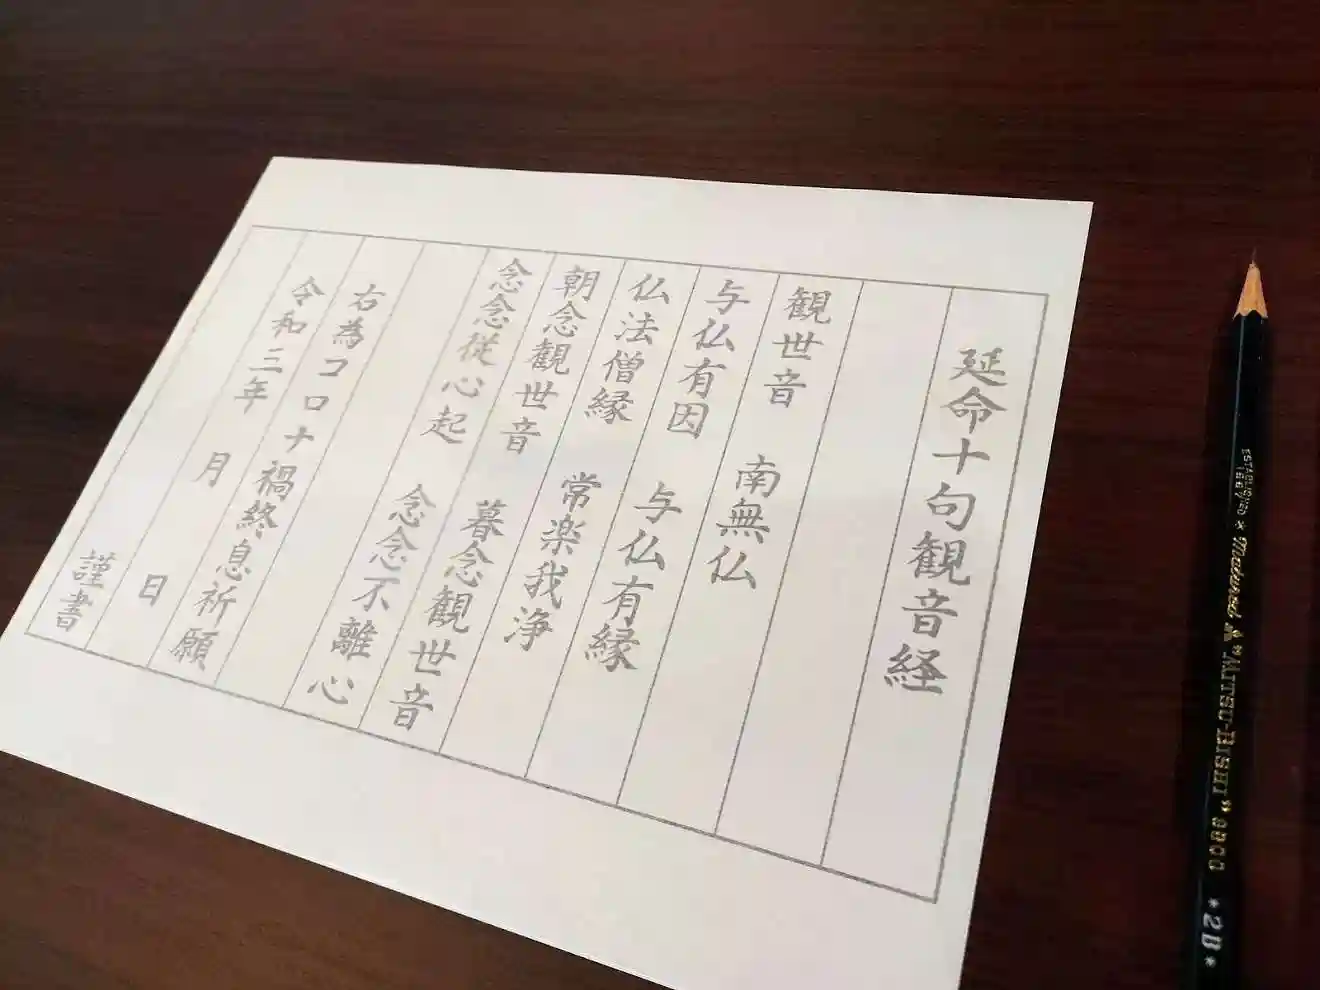 延命十句観音経
観世音　南無仏
与仏有因　与仏有縁
仏法僧縁　常楽我浄
朝念観世音　暮念観世音
念念従心起　念念不離心
右為コロナ禍終息祈願
令和三年　月　日
謹書
ESTABLISHED 1887 * Mitsubishi "MITSU-BISHI" 9800 *2B*